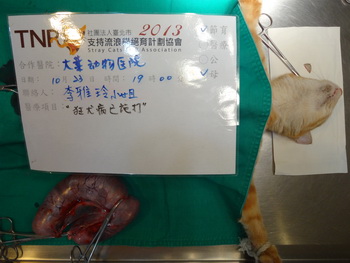 TNR 2013
社團法人臺北市
支持流浪貓絕育計劃協會
Stray Cat
合作醫院：大華動物医院
日期：10月23日 時間：19時00
聯絡人：李雅玲小姐
醫療項目："狂犬病已施打"
節育
醫療
公
母